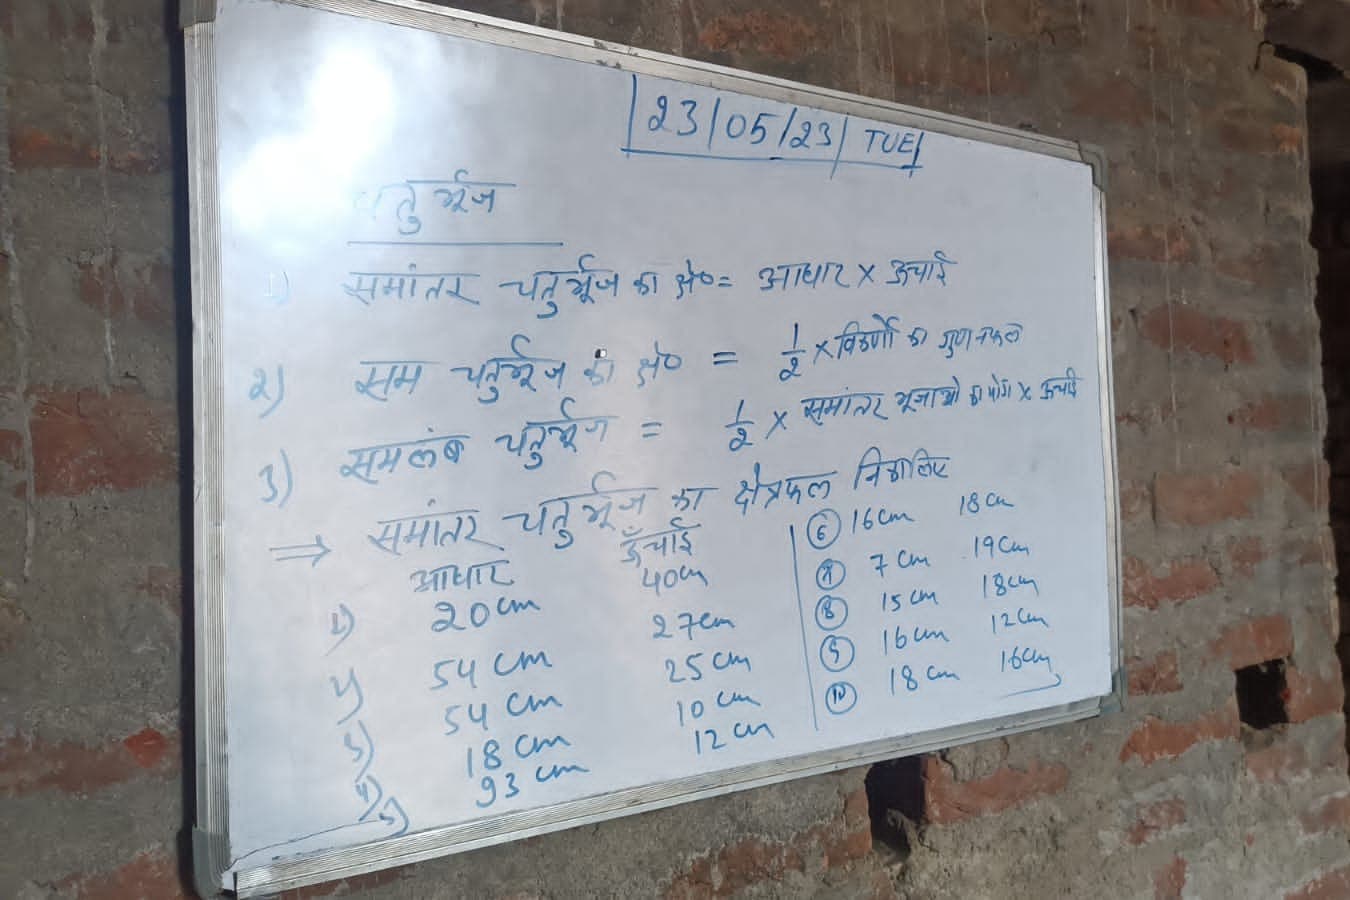 23/05/23/ TUE
चतुर्भूज
1) समांतर चतुर्भूज का क्षे० = आधार × ऊचाई
2) सम चतुर्भूज का क्षे० = 1/2 × विकर्णो का गुणनफल
3) समलंब चतुर्भूज = 1/2 × समांतर भूजाओ का योग × ऊचाई
⇒ समांतर चतुर्भूज का क्षेत्रफल निकालिए
आधार ऊँचाई
1) 20cm 40cm
2) 54cm 27cm
3) 54cm 25cm
4) 18cm 10cm
5) 93cm 12cm
6 16cm 18cm
7 7cm 19cm
8 15cm 18cm
9 16cm 12cm
10 18cm 16cm